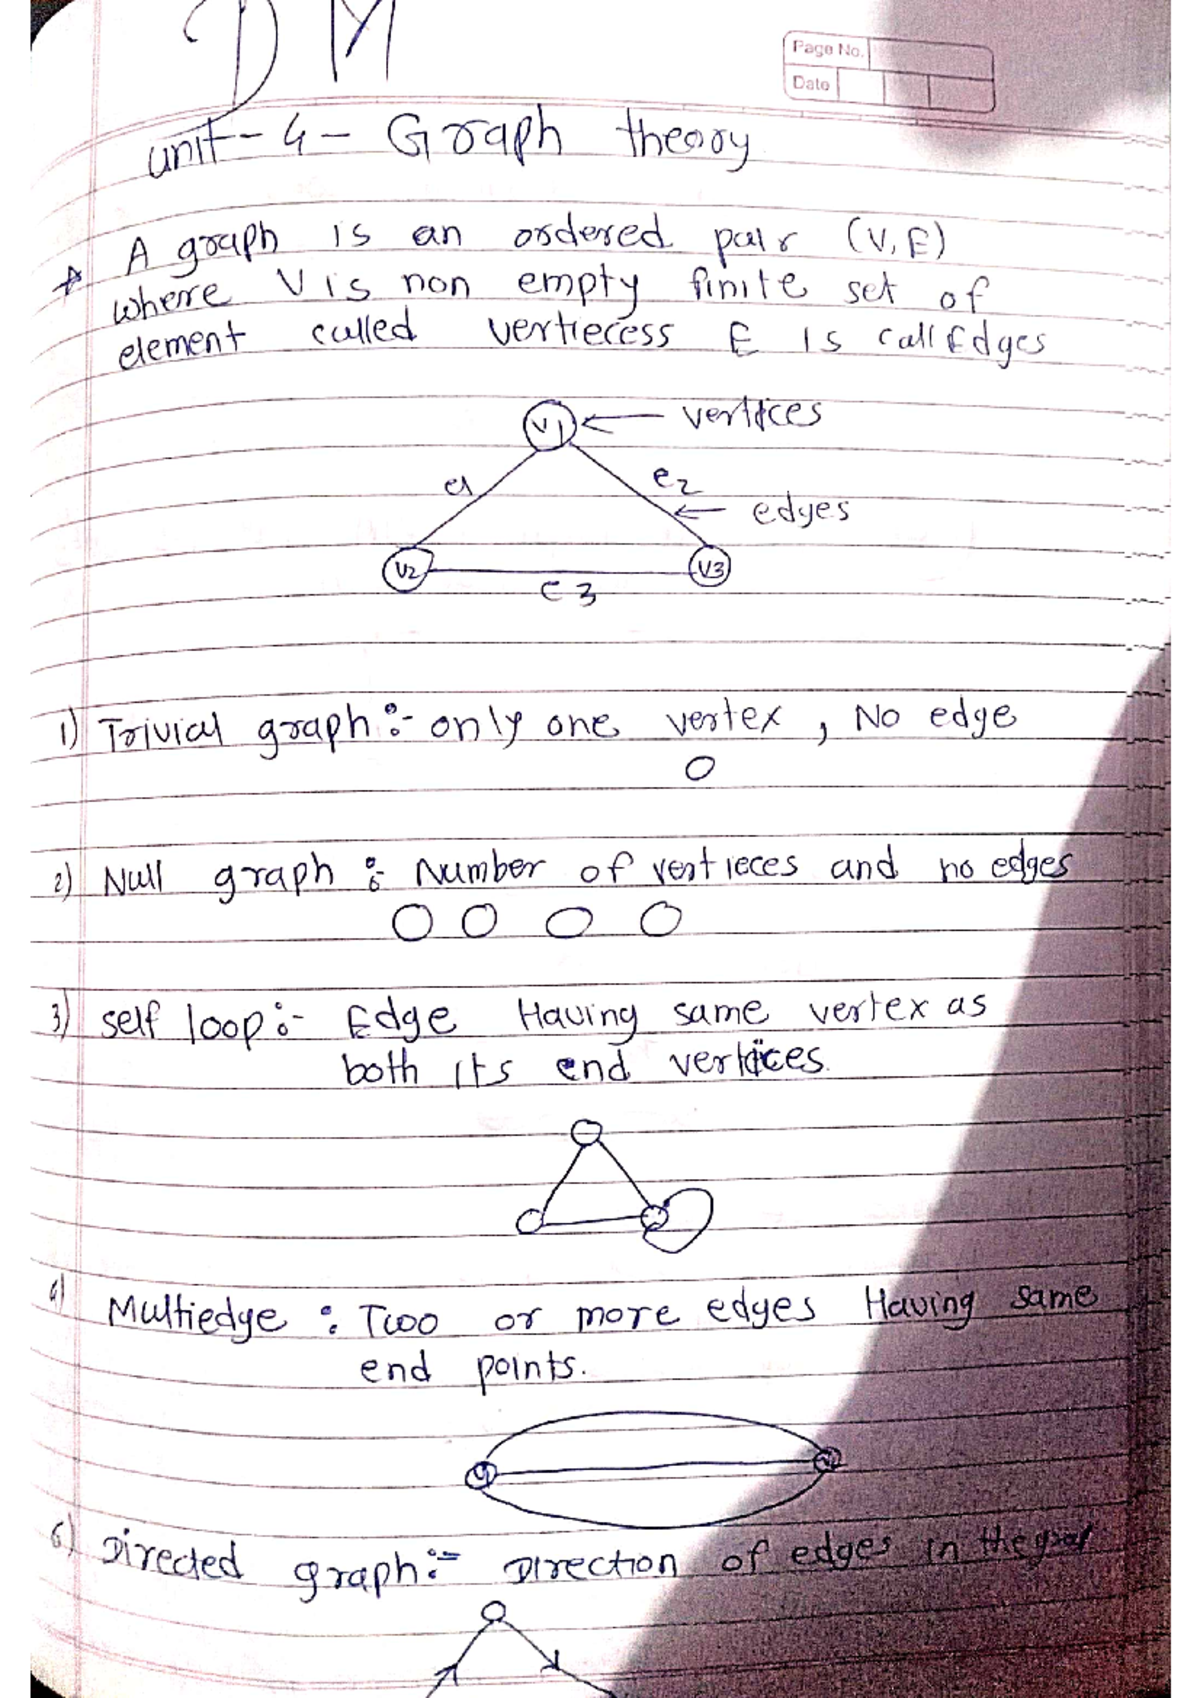 DM
Page No.
Date
unit - 4 - Graph theory
A graph is an ordered pair (V, E)
where V is non empty finite set of
element called vertiecess E is call Edges
V1 ← vertices
e1 e2
← edges
V2 V3
e3
1) Trivial graph :- only one vertex , No edge
2) Null graph : Number of vertieces and no edges
3) self loop :- Edge Having same vertex as
both its end vertices.
4) Multiedge : Two or more edges Having same
end points.
6) Directed graph :- Direction of edges in the